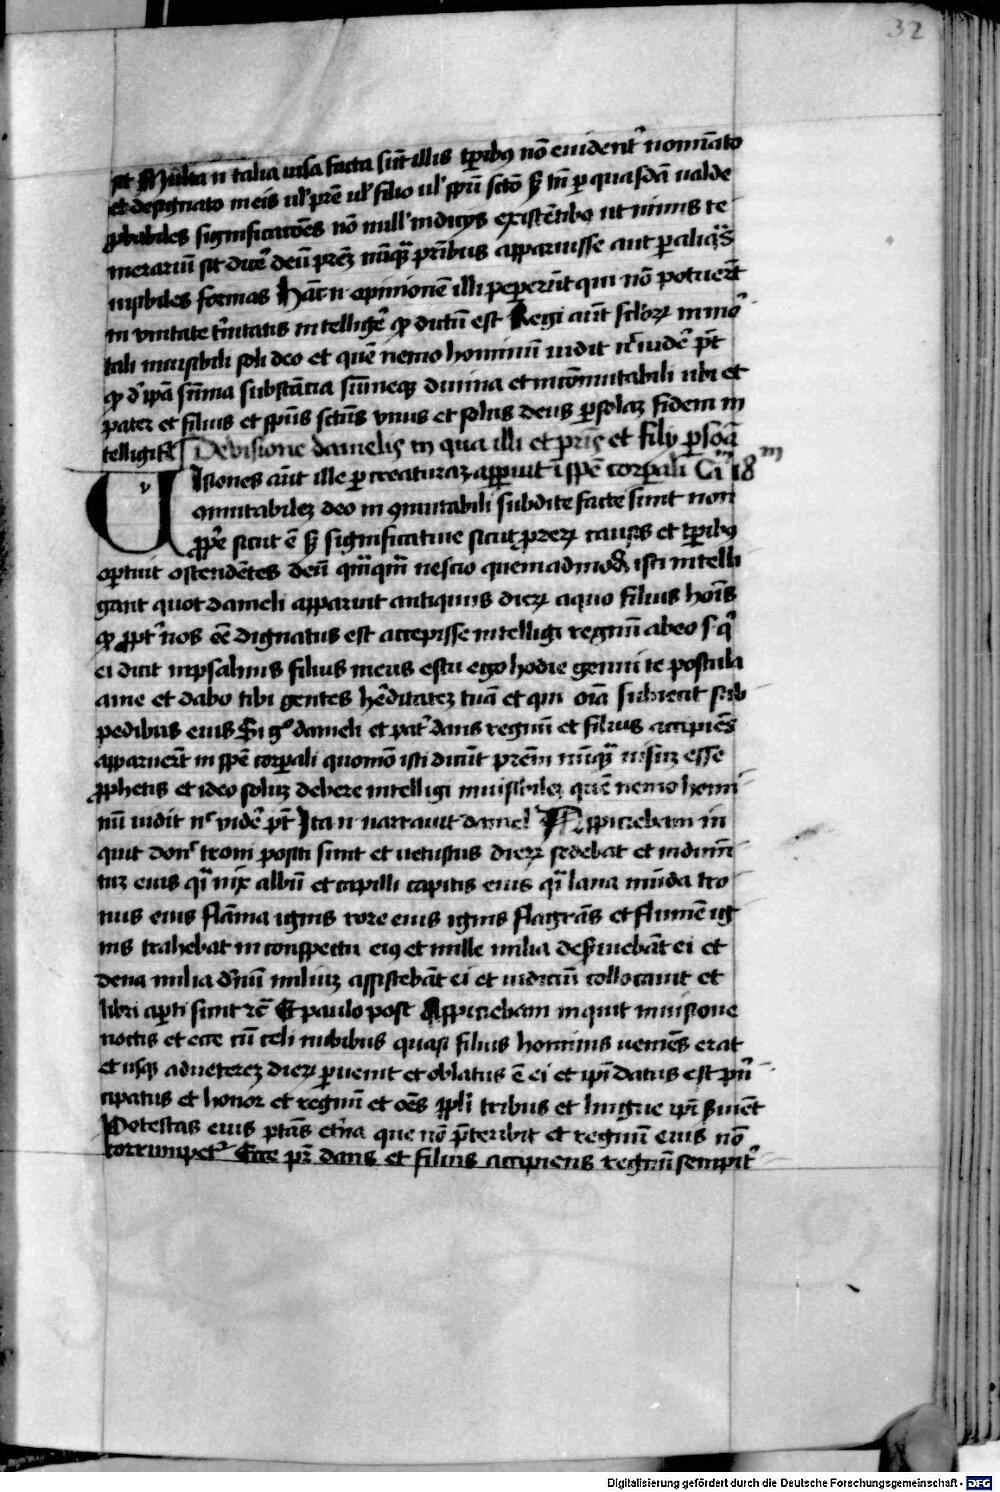 32
sit Multa n̄ talia uisa facta sūt illis tp̄ribꝯ nō euident̄ nomīato
et designato in eis ul' prē ul' filio ul' spū sctō sꝫ tn̄ ꝑ quasdā ualde
ꝓbabiles significatōēs nō null' indicijs existētibꝯ ut nimis te
merariū sit dic̄e deū prēꝫ nūq̄ꝫ pr̄ibus apparuisse aut ꝑ aliq̄s
uisibiles formas Hāc n̄ opinionē illi pepererūt qui nō potuerūt
in vnitate t̄initatis intelliḡe ꝙ dictū est Regi aūt sc̄loꝝ inmor
tali inuisibili soli deo et quē nemo hominū uidit n̄ uidē pt̄
ꝙ d̄ ip̄ā sūma substācia sūmeqꝫ diuina et incōmutabili ubi et
pater et filius et sp̄us sctūs vnus et solus deus ꝑ solaꝫ fidem in
telligit̄ De visione danielis in qua illi et pr̄is et filij ꝑsōa
Uisiones aūt ille ꝑ creaturaꝫ apparuit ī spē corꝑali Cm̄ 18m
v
ꝯmutabileꝫ deo inꝯmutabili subdite facte sunt non
ꝓpe sicut ē sꝫ significatiue sicut ꝓ reꝝ causis et tp̄ribꝯ
oportuit ostendētes deū qūqm̄ nescio quemadmodū isti intelli
gant quot danieli apparuit antiquus dieꝝ a quo filius hoīs
ꝙ ꝓpt̄ nos eē dignatus est accepisse intelligi regnū ab eo sc̄ q̄
ei dicit in psalmis filius meus es tu ego hodie genui te postula
a me et dabo tibi gentes hēditateꝫ tuā et qui oīa subiecit sub
pedibus eius Si g° danieli et pat̄ dans regnū et filius accipiēs
apparuer̄t in spē corꝑali quomō isti dicūt prēm nūq̄ꝫ uisuꝫ esse
ꝓphetis et ideo soluꝫ debere intelligi inuisibileꝫ quē nemo homi
nū uidit n̄c vidē pt̄ Ita n̄ narrauit daniel Aspiciebam in
quit donec troni positi sunt et uetustus dieꝝ sedebat et indumē
tuꝫ eius q̄i nix albū et capilli capitis eius q̄i lana mūda tro
nus eius flāma ignis rote eius ignis flagrās et flumē ig
nis trahebat in conspectu eiꝯ et mille milia deseruiebāt ei et
dena milia dēnū miliuꝫ assistebāt ei et iudiciū collocauit et
libri aꝑti sunt ⁊c̄ Et paulo post Aspiciebam inquit in uisione
noctis et ecce cū celi nubibus quasi filius hominis ueniēs erat
et usqꝫ ad ueterēꝫ dieꝝ ꝑuenit et oblatus ē ei et ip̄i datus est prī
cipatus et honor et regnū et oēs ppl̄i tribus et lingue ip̄i s̄uient
Potestas eius ptās et̄na que nō p̄teribit et regnū eius nō
corrumpet̄ Ecce pr̄ dans et filius accipiens regnū sempit̄
Digitalisierung gefördert durch die Deutsche Forschungsgemeinschaft - DFG